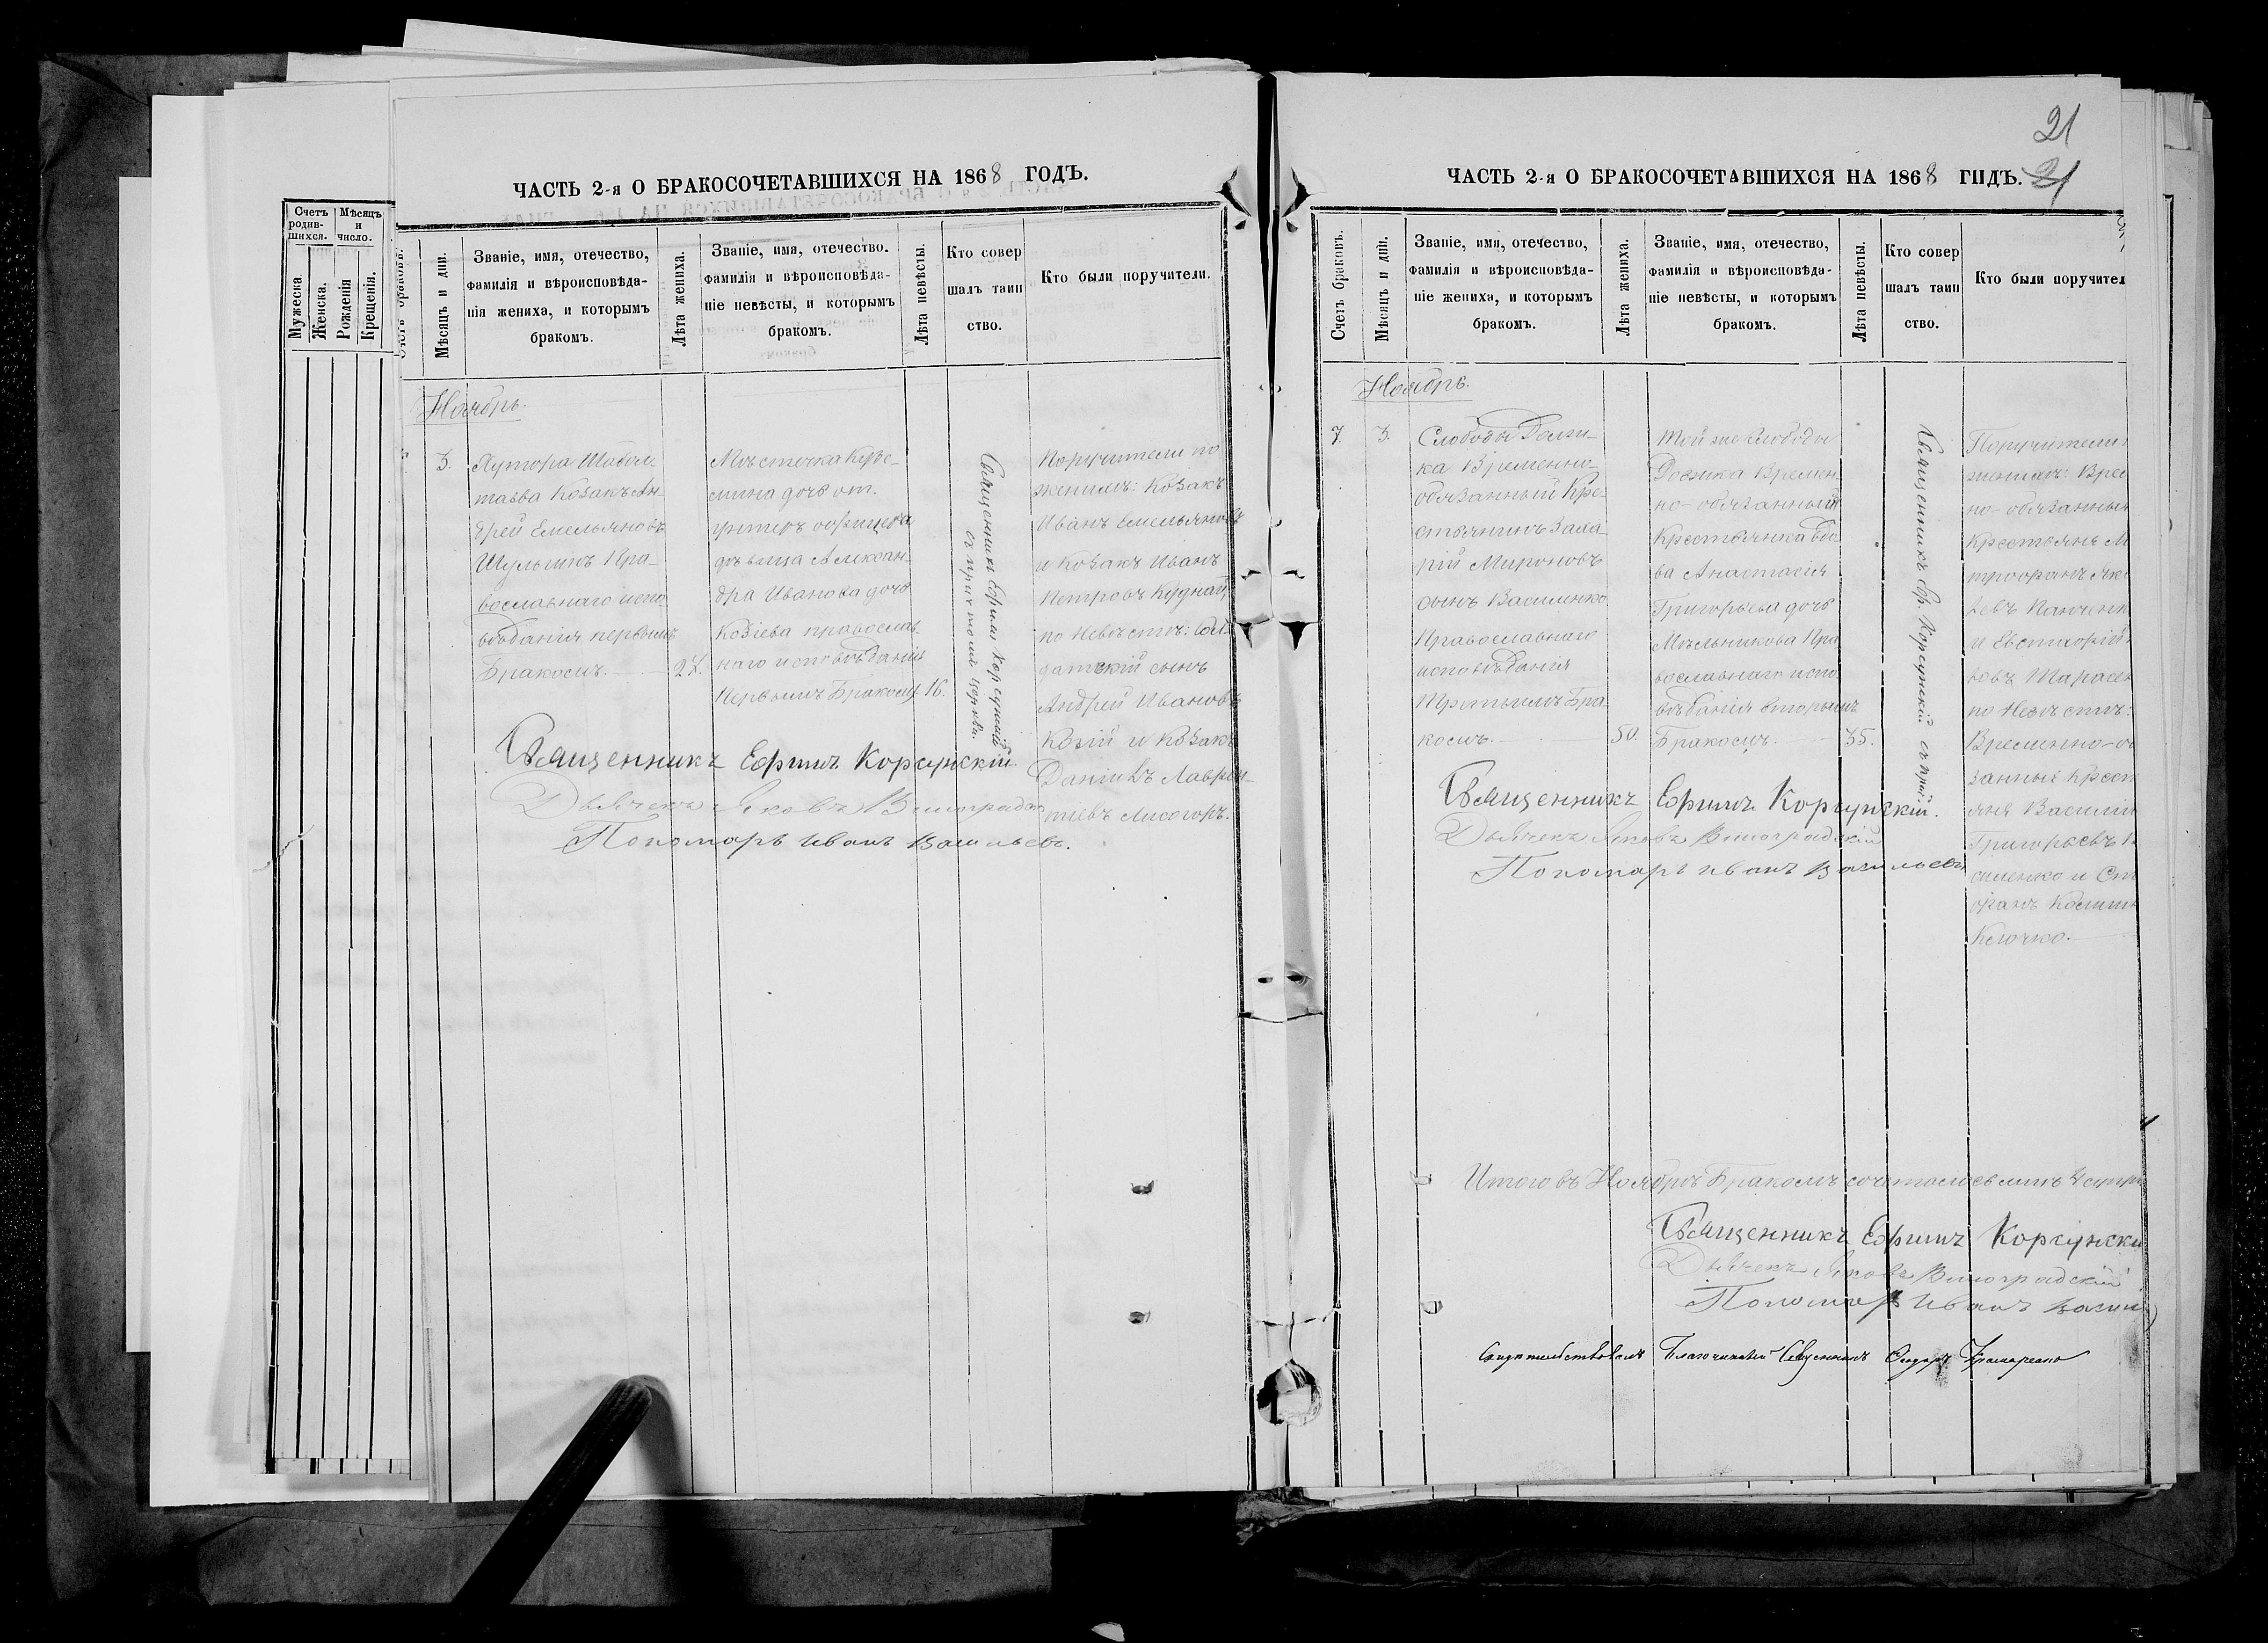 ЧАСТЬ 2-я О БРАКОСОЧЕТАВШИХСЯ НА 1868 ГОДЪ.
Счетъ родив-
шихся.
Мѣсяцъ
и
число.
Мужеска
Женска.
Рожденія
Крещенія.
Мѣсяцъ и дни.
Званіе, имя, отечество,
фамилія и вѣроисповѣда-
нія жениха, и которымъ
бракомъ.
Лѣта жениха.
Званіе, имя, отечество.
фамилія и вѣроисповѣда-
ніе невѣсты, и которымъ
бракомъ.
Лѣта невѣсты.
Кто совер
шалъ таин
ство.
Кто были поручители.
Ноябрь.
3.
Хутора
Козакъ Ан-
дрей Емельяновъ
Шульгинъ Пра-
вославнаго испо
вѣданія первымъ
Бракомъ.
Мѣстечка
дочь от.
ундеръ офицера
дѣвица Алексан-
дра Иванова дочь
Козіева православ-
наго исповѣданія
Первымъ Бракомъ 16.
Священникъ Ефимъ Корсунскій
съ причтомъ церкви.
Поручители по
женихѣ: Козакъ
Иванъ Емельяновъ
и Козакъ Иванъ
Петровъ
по Невѣстѣ: Сол-
датскій сынъ
Андрей Ивановъ
Козій и Козакъ
Даніилъ Лаврен-
тіевъ Лисогоръ.
Священникъ Ефимъ Корсунскій.
Дьячекъ Яковъ Виноградскій
Пономарь Иванъ Васильевъ.
21
ЧАСТЬ 2-я О БРАКОСОЧЕТАВШИХСЯ НА 1868 ГОДЪ.
21
Счетъ браковъ.
Мѣсяцъ и дни.
Званіе, имя, отечество,
фамилія и вѣроисповѣда-
ніе жениха, и которымъ
бракомъ.
Лѣта жениха.
Званіе, имя, отечество,
фамилія и вѣроисповѣда-
ніе невѣсты, и которымъ
бракомъ.
Лѣта невѣсты.
Кто совер
шалъ таин
ство.
Кто были поручител
Ноябрь.
7. 3.
Слободы Должи-
ка Временно-
обязанный Кре-
стьянинъ
Мироновъ
сынъ Василенко
Православнаго
исповѣданія
Третьимъ Бра-
комъ. 50.
Той же Слободы
Должика Времен-
но-обязанный
Крестьянка вдо
ва Анастасія
Григорьева дочь
Мѣльникова Пра
вославнаго испо
вѣданія вторымъ
Бракомъ. 35.
Священникъ Еф. Корсунскій съ прич
Поручители
женихѣ: Врем
но-обязанные
Крестьяне М
трофанъ Яко
левъ Панченк
и Евстафій
вовъ Тарасен
по Невѣстѣ:
Временно-о
занные Крест
яне Василій
Григорьевъ В
силенко и Ст
фанъ
Клочко.
Священникъ Ефимъ Корсунскій.
Дьячекъ Яковъ Виноградскій
Пономарь Иванъ Васильевъ
Итого въ Ноябрѣ Бракомъ сочеталось
Священникъ Ефимъ Корсунски
Дьячекъ Яковъ Виноградскій
Пономарь Иванъ Васил
Свидѣтельствовалъ Благочинный Священникъ Ѳеодоръ